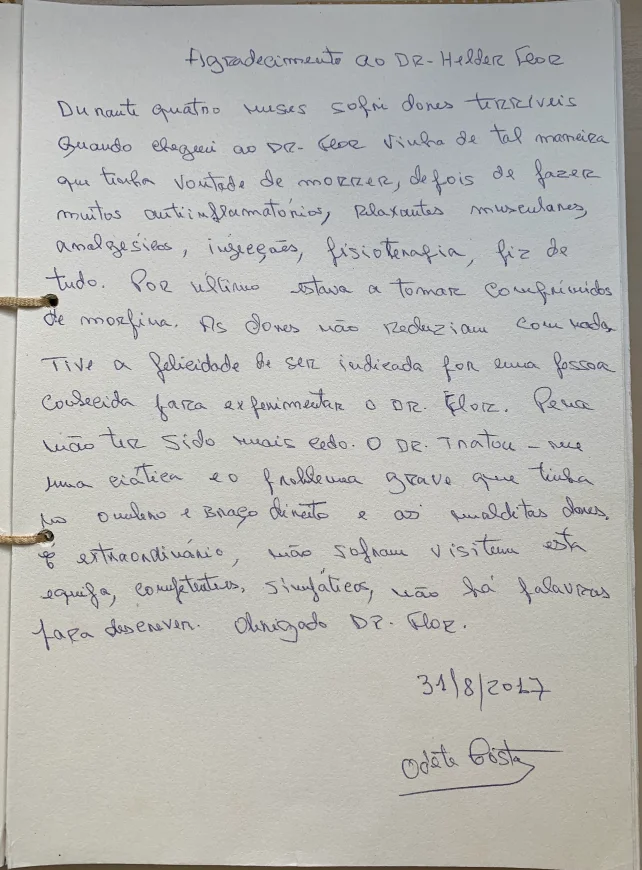 Agradecimento ao DR- Helder Flor
Durante quatro meses sofri dores terríveis
Quando cheguei ao DR- Flor vinha de tal maneira
que tinha vontade de morrer, depois de fazer
muitos antiinflamatórios, relaxantes musculares,
analgésicos, injecções, fisioterapia, fiz de
tudo. Por último estava a tomar comprimidos
de morfina. As dores não reduziam com nada.
Tive a felicidade de ser indicada por uma pessoa
conhecida para experimentar o DR. Flor. Pena
não ter sido mais cedo. O DR. Tratou-me
uma ciática e o problema grave que tinha
no ombro e Braço direito e as malditas dores.
É extraordinário, não sofram visitem esta
equipa, competentes, simpáticos, não há palavras
para descrever. Obrigado DR. Flor.
31/8/2017
Odete Costa